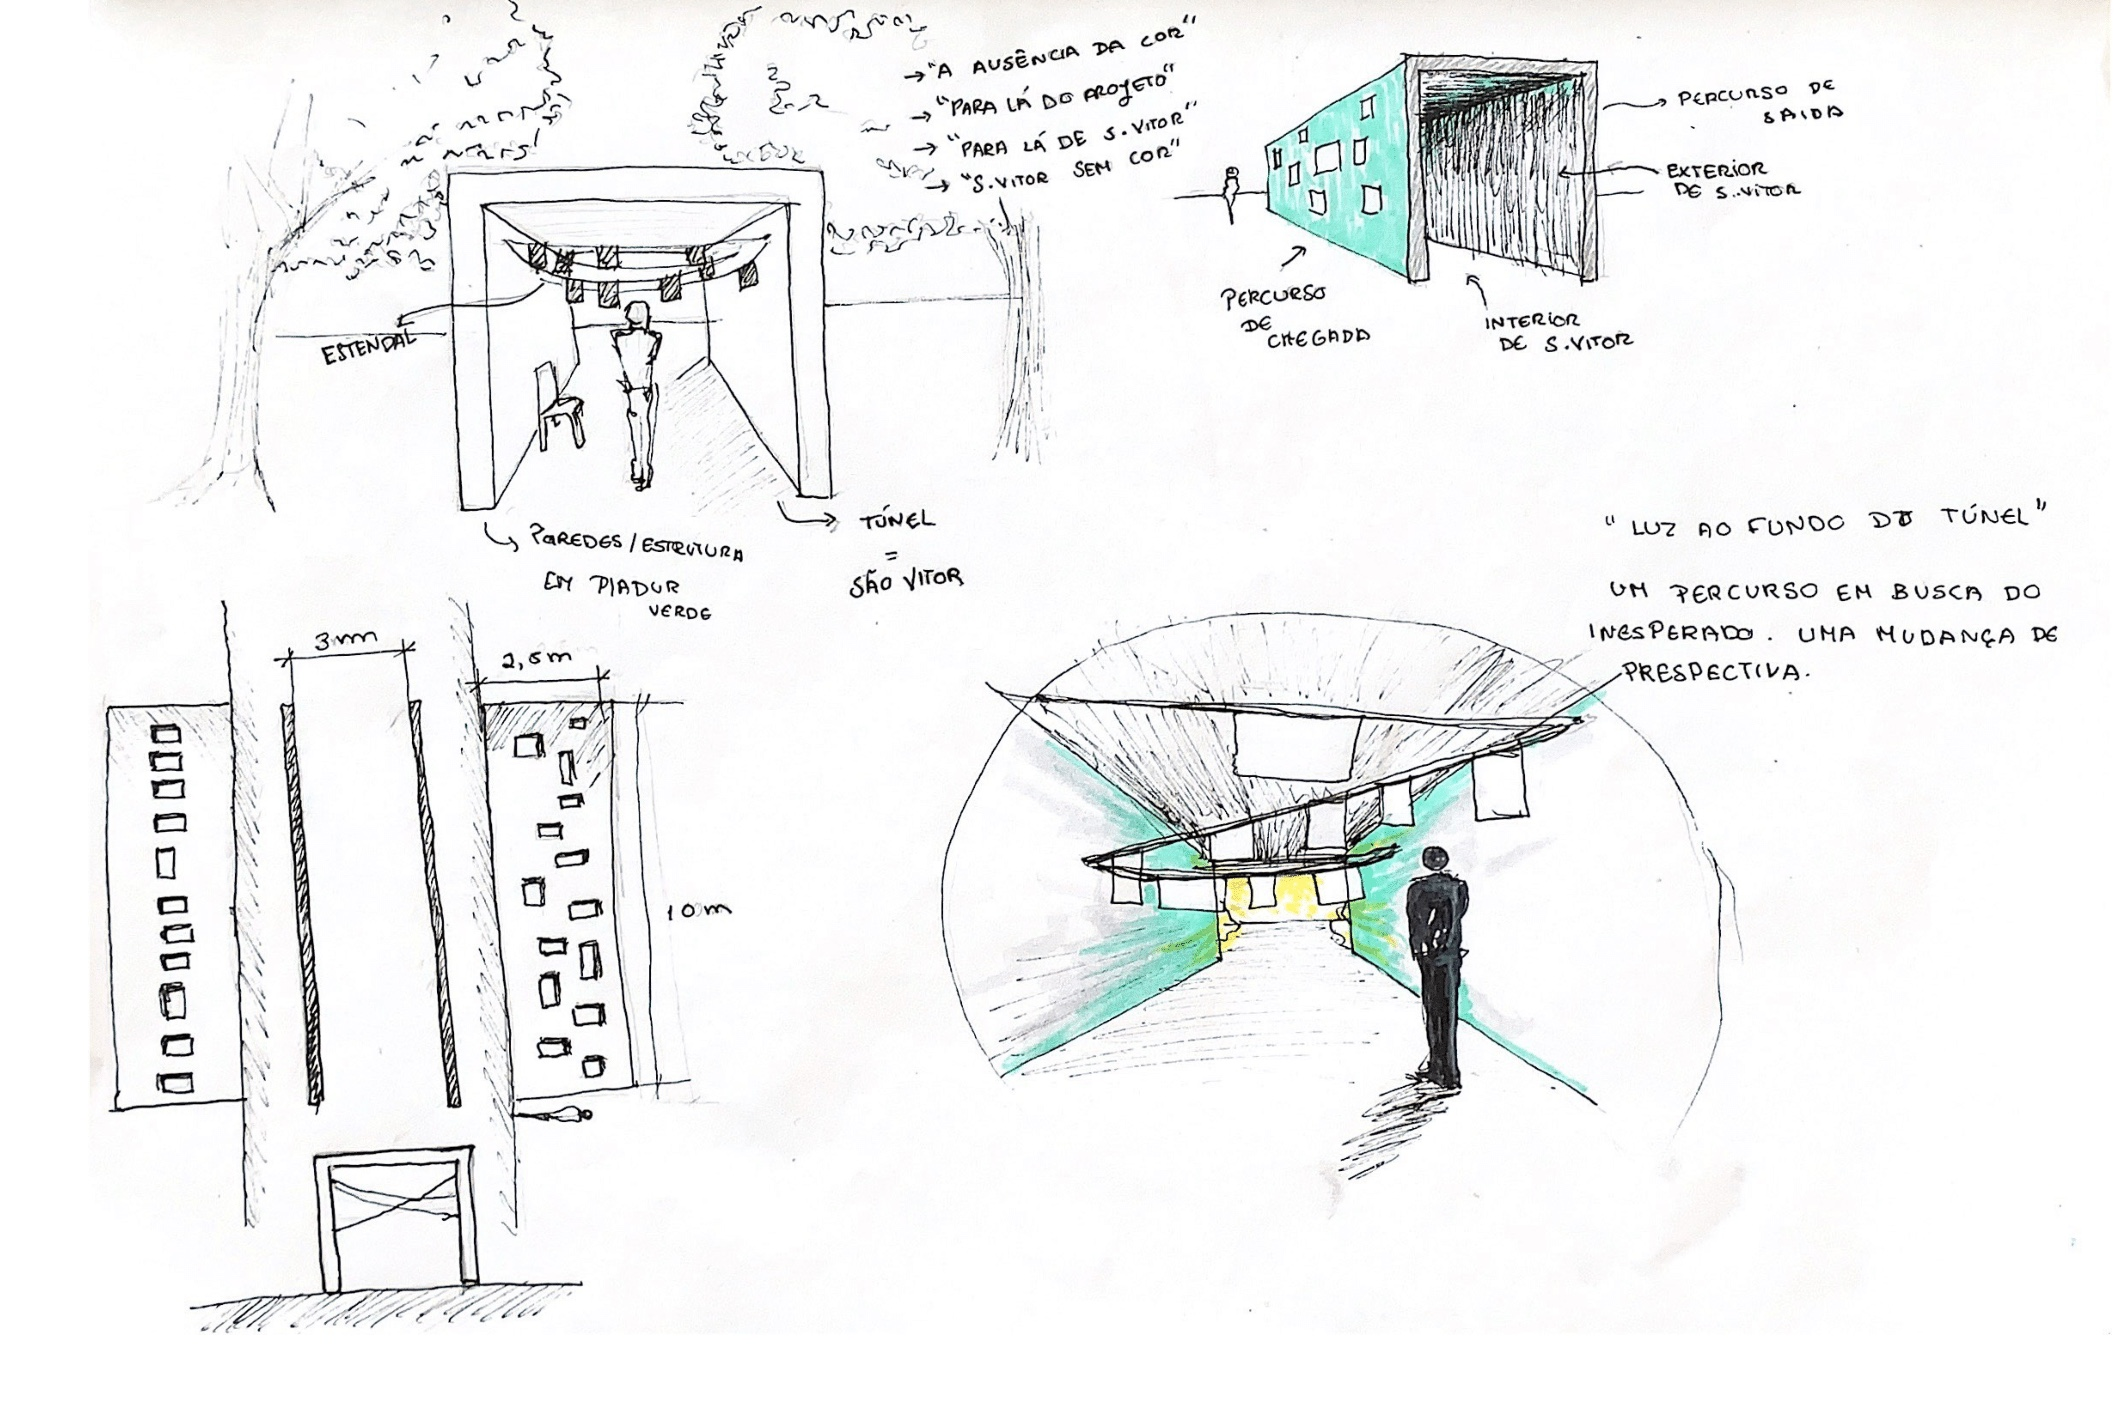 → "A AUSÊNCIA DA COR"
→ "PARA LÁ DO PROJETO"
→ "PARA LÁ DE S.VITOR"
→ "S.VITOR SEM COR"
ESTENDAL
PAREDES/ESTRUTURA
EM PLADUR
VERDE
TÚNEL
=
SÃO VITOR
PERCURSO DE
SAIDA
EXTERIOR
DE S.VITOR
PERCURSO
DE
CHEGADA
INTERIOR
DE S.VITOR
"LUZ AO FUNDO DO TÚNEL"
UM PERCURSO EM BUSCA DO
INESPERADO. UMA MUDANÇA DE
PRESPECTIVA.
3m
2,5m
10m